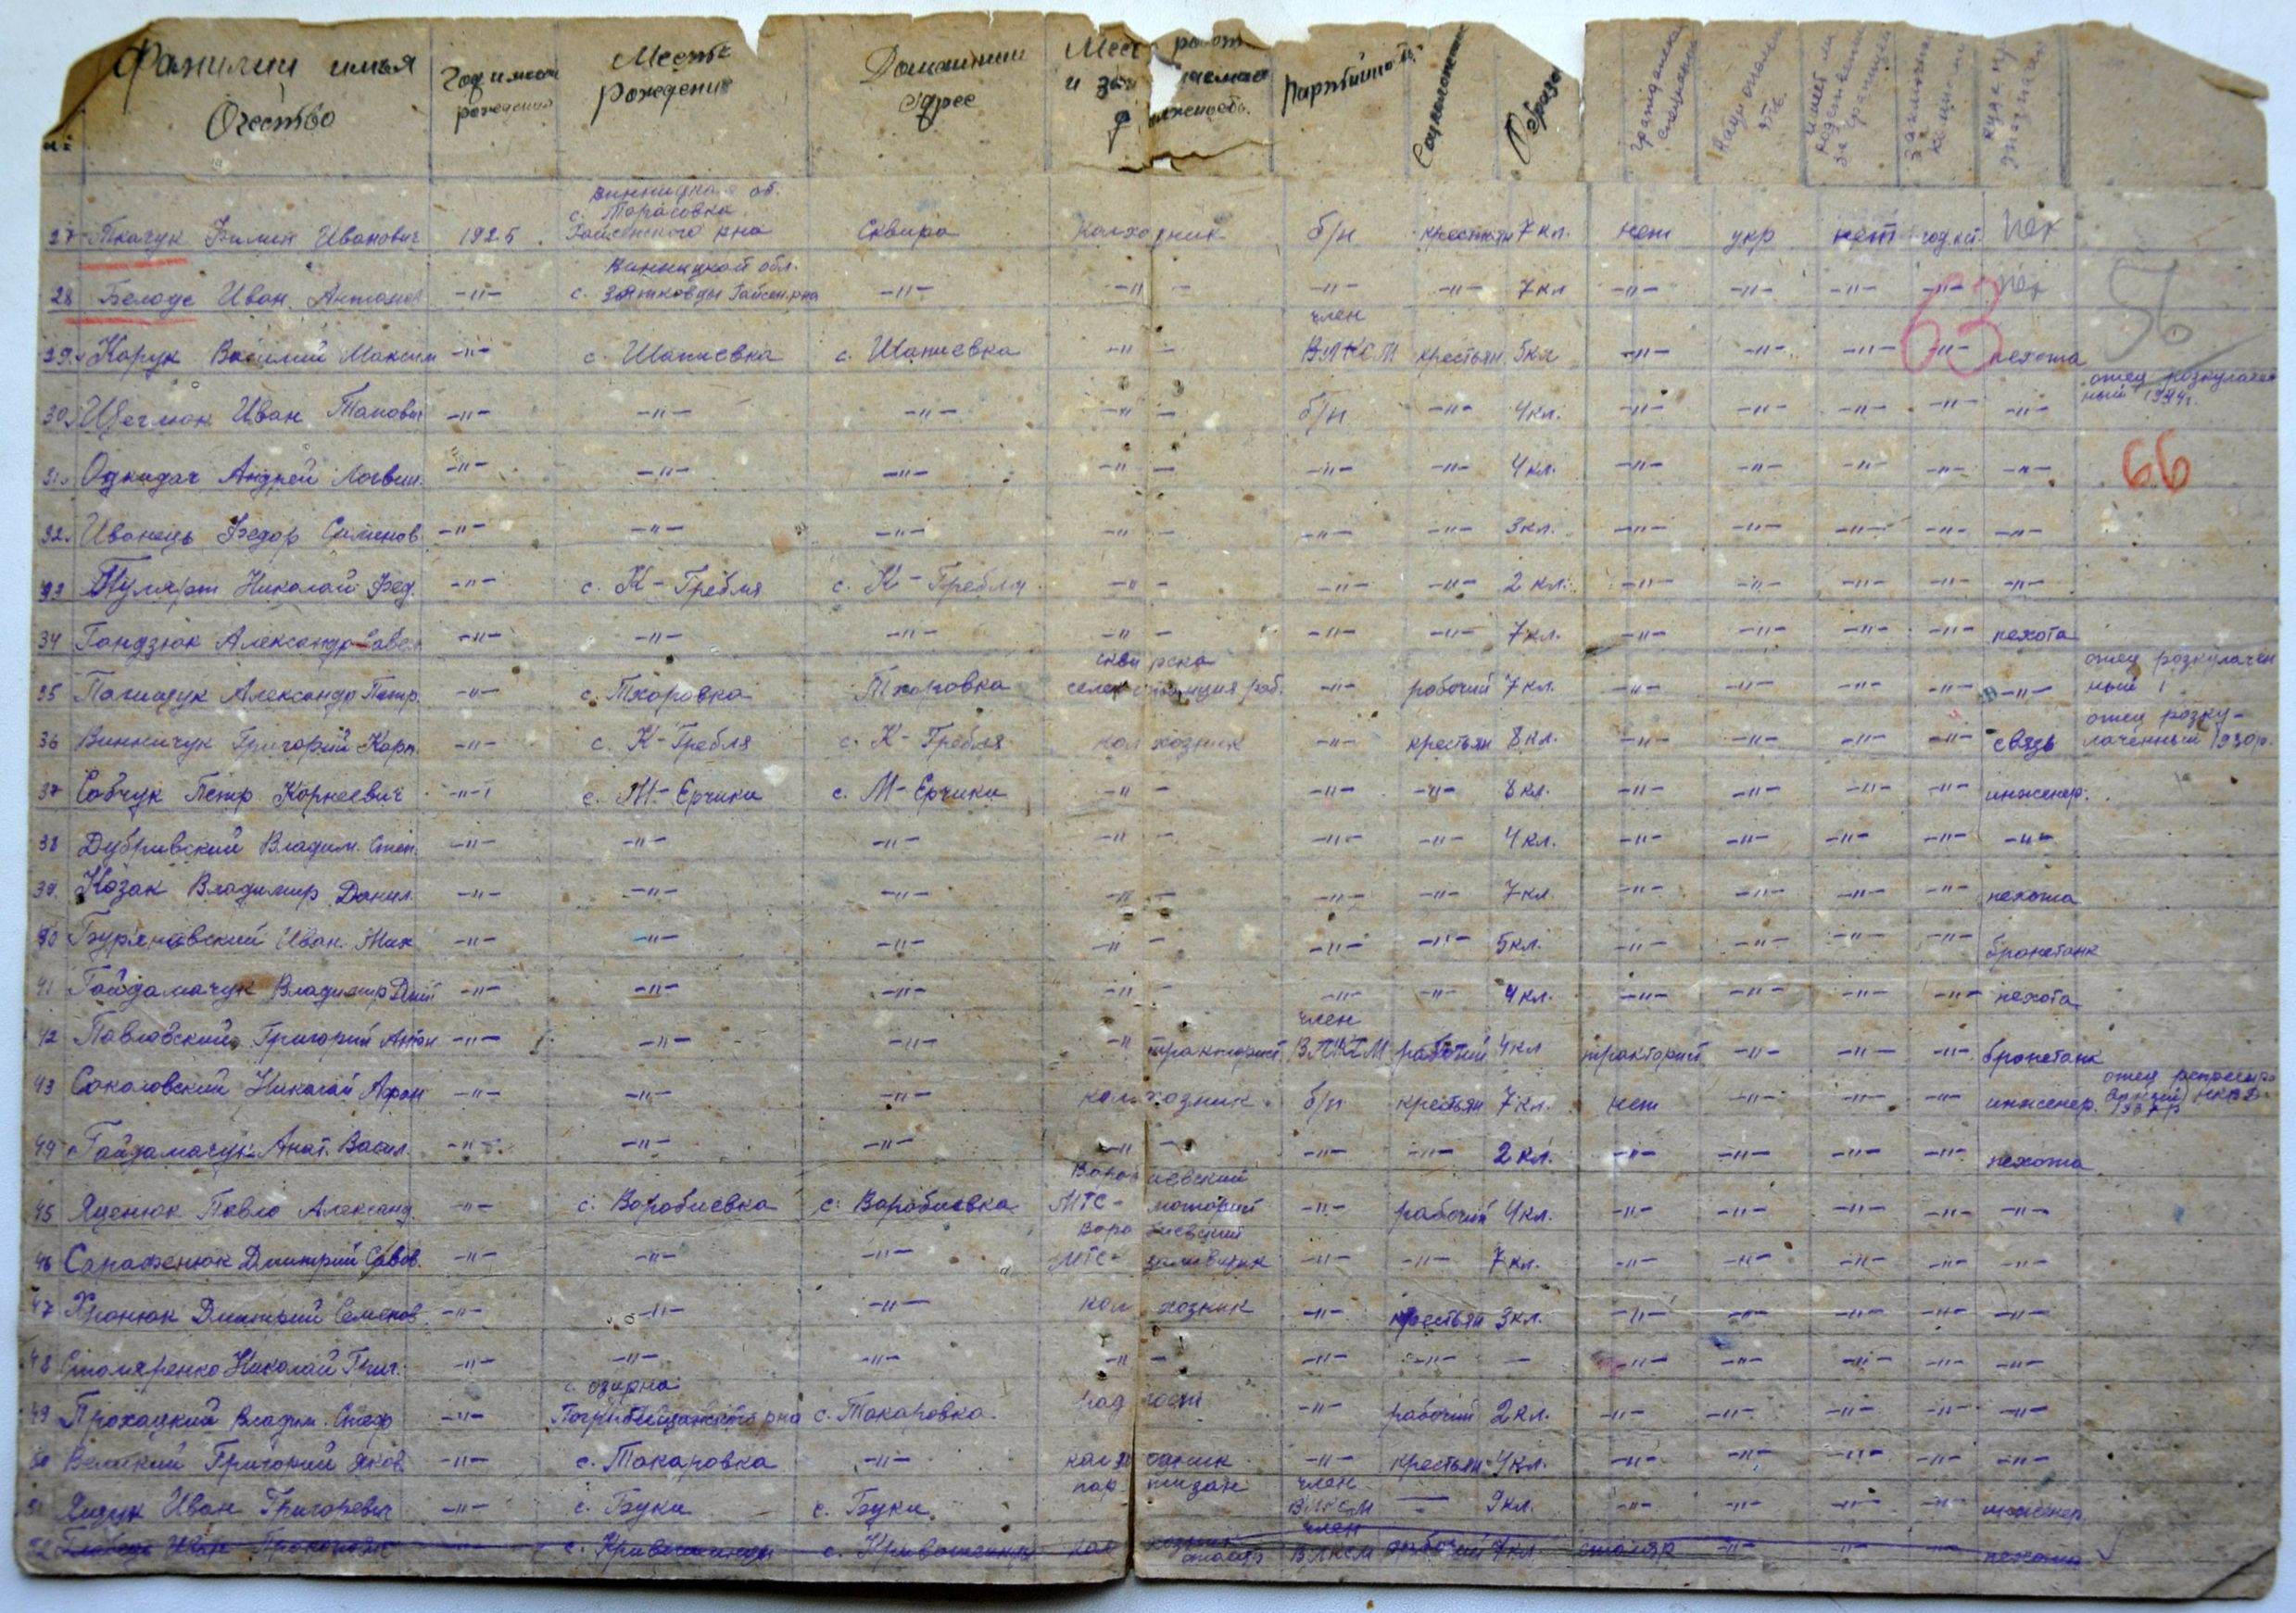 Фамилии имья Отчество Год и месяц рождения Место рождения Домашний адрес Партийность Образо Гражданская специальн Национальн ть имеет ли родственн за границей
27 Ткачук Филип Иванович 1925 Винницкая об. с. Тарасовка Гайсенского р-на Сквира Колхозник б/п крестьян 7 кл. нет укр нет год.к ст. пех
28 Белоус Иван Антонов -"- Винницкой обл. с. Зятковцы Гайсен. рна -"- -"- -"- -"- 7 кл -"- -"- -"- -"- пех
63 56
29. Корук Василий Максим -"- с. Шапиевка с. Шапиевка -"- член ВЛКСМ крестьян. 5 кл -"- -"- -"- -"- пехота
30. Щеглюк Иван -"- -"- -"- -"- б/п -"- 4 кл. -"- -"- -"- -"- -"- отец розкулачен ный
31. Однидач Андрей Логвин. -"- -"- -"- -"- -"- -"- 4 кл. -"- -"- -"- -"- -"- 66
32. Иванець Федор Сименов -"- -"- -"- -"- -"- -"- 3 кл. -"- -"- -"- -"- -"-
33 Николай Фед. -"- с. К-Гребля с. К-Гребля -"- -"- -"- 2 кл. -"- -"- -"- -"- -"-
34 Гандзюк Александр Савел -"- -"- -"- -"- -"- -"- 7 кл. -"- -"- -"- -"- пехота
35 Александр Петр. -"- с. Тхоровка Тхоровка сквирска селекстанция раб. -"- рабочий 7 кл. -"- -"- -"- -"- -"- отец розкулачен ный
36 Винничук Григорий Карп. -"- с. К-Гребля с. К-Гребля колхозник -"- крестьян 8 кл. -"- -"- -"- -"- связь отец розку-лаченный 1930р.
37 Собчук Петр Корнеевич -"- с. М-Ерчики с. М-Ерчики -"- -"- -"- 8 кл. -"- -"- -"- -"- инженер.
38 Дубривский Владим. Степ. -"- -"- -"- -"- -"- -"- 4 кл. -"- -"- -"- -"- -"-
39. Козак Владимир Данил. -"- -"- -"- -"- -"- -"- 7 кл. -"- -"- -"- -"- пехота
40 Буряновский Иван Мих -"- -"- -"- -"- -"- -"- 5 кл. -"- -"- -"- -"- бронетанк
41 Гайдамачук Владимир Дмит -"- -"- -"- -"- -"- -"- 4 кл. -"- -"- -"- -"- пехота
42 Павловский Григорий Антон -"- -"- -"- -"- тракторист член ВЛКСМ рабочий 4 кл тракторист -"- -"- -"- бронетанк
43 Соколовский Николай Афон -"- -"- -"- колхозник б/п крестьян 7 кл. нет -"- -"- -"- инженер. отец репресиро ваный НКВД 1937р
44 Гайдамачук Анат. Васил. -"- -"- -"- -"- -"- -"- 2 кл. -"- -"- -"- -"- пехота
45 Яценюк Павло Александ. -"- с. Воробиевка с. Воробиевка МТС - моторист -"- рабочий 4 кл. -"- -"- -"- -"- -"-
46 Сарафенюк Дмитрий Савов. -"- -"- -"- МТС - заливщик -"- -"- 7 кл. -"- -"- -"- -"- -"-
47 Хронюк Дмитрий Семенов. -"- -"- -"- колхозник -"- крестьян 3 кл. -"- -"- -"- -"- -"-
48 Столяренко Николай Григ. -"- -"- -"- -"- -"- -"- - -"- -"- -"- -"- -"-
49 Прохацкий Владим. Стеф -"- с. озирна Погребищанского рна с. Токаровка. радгосп -"- рабочий 2 кл. -"- -"- -"- -"- -"-
50 Великий Григорий Яков -"- с. Токаровка -"- колхозник -"- крестьян 4 кл. -"- -"- -"- -"- -"-
51 Иван Григоревич -"- с. Буки с. Буки. партизан член ВЛКСМ — 9 кл. -"- -"- -"- -"- инженер.
52 Иван Прокопович -"- с. Кривошеинци с. Кривошеинци колхозник столяр член ВЛКСМ рабочий 7 кл столяр -"- -"- -"- пехота